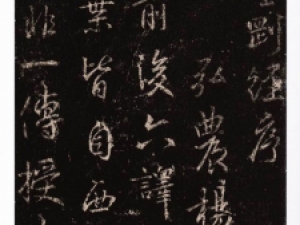 剛經序
弘農楊
前後六譯
業皆自西
非一傳授